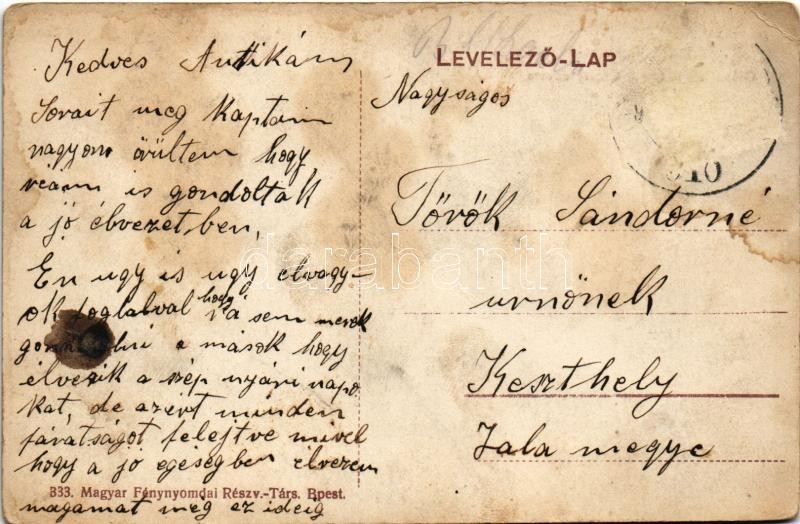 Kedves Antikám
Sorait meg kaptam
nagyon örültem hogy
reám is gondoltak
a jó élvezetben,
En ugy is ugy elvagy-
ok foglalval hogy rá sem merek
gondolni a mások hogy
élvezik a szép nyári napo
kat, de azért minden
fáratságot felejtve mivel
hogy a jó egéségben élvezem
magamat még ez ideig
333. Magyar Fénynyomdai Részv.-Társ. Bpest.
LEVELEZŐ-LAP
Nagyságos
Török Sándorné
urnőnek
Keszthely
Zala megye
910
darabanth